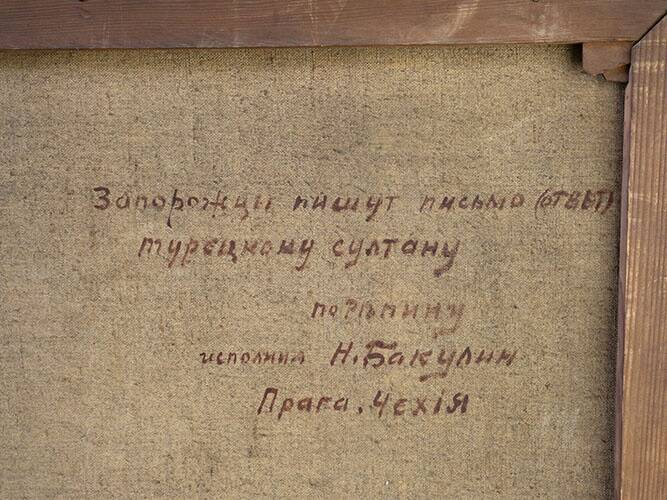 Запорожцы пишут письмо (ОТВЕТ)
турецкому султану
по Рѣпину
исполнил Н. Бакулин
Прага. Чехія